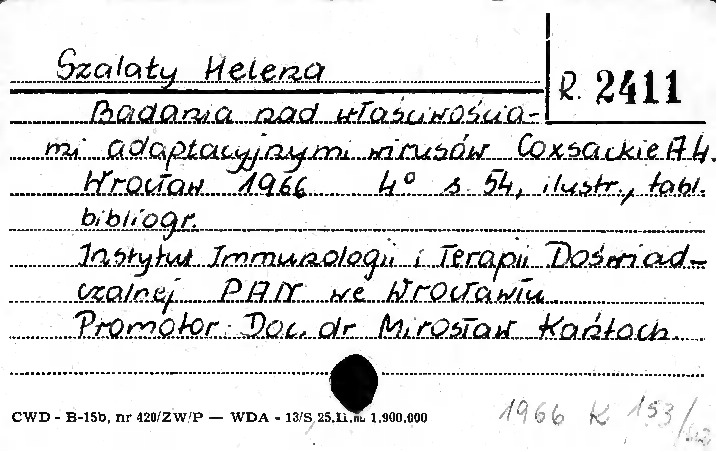 Szalaty Helena
R. 2411
Badania nad właściwościa-
mi adaptacyjnymi wirusów Coxsackie A4.
Wrocław 1966 4° s. 54, ilustr., tabl.
bibliogr.
Instytut Immunologii i Terapii Doświad-
czalnej PAN we Wrocławiu
Promotor: Doc. dr Mirosław Kańtoch.
CWD - B-15b, nr 420/ZW/P — WDA - 13/S 25.II. 1,900,000
1966 K 153/